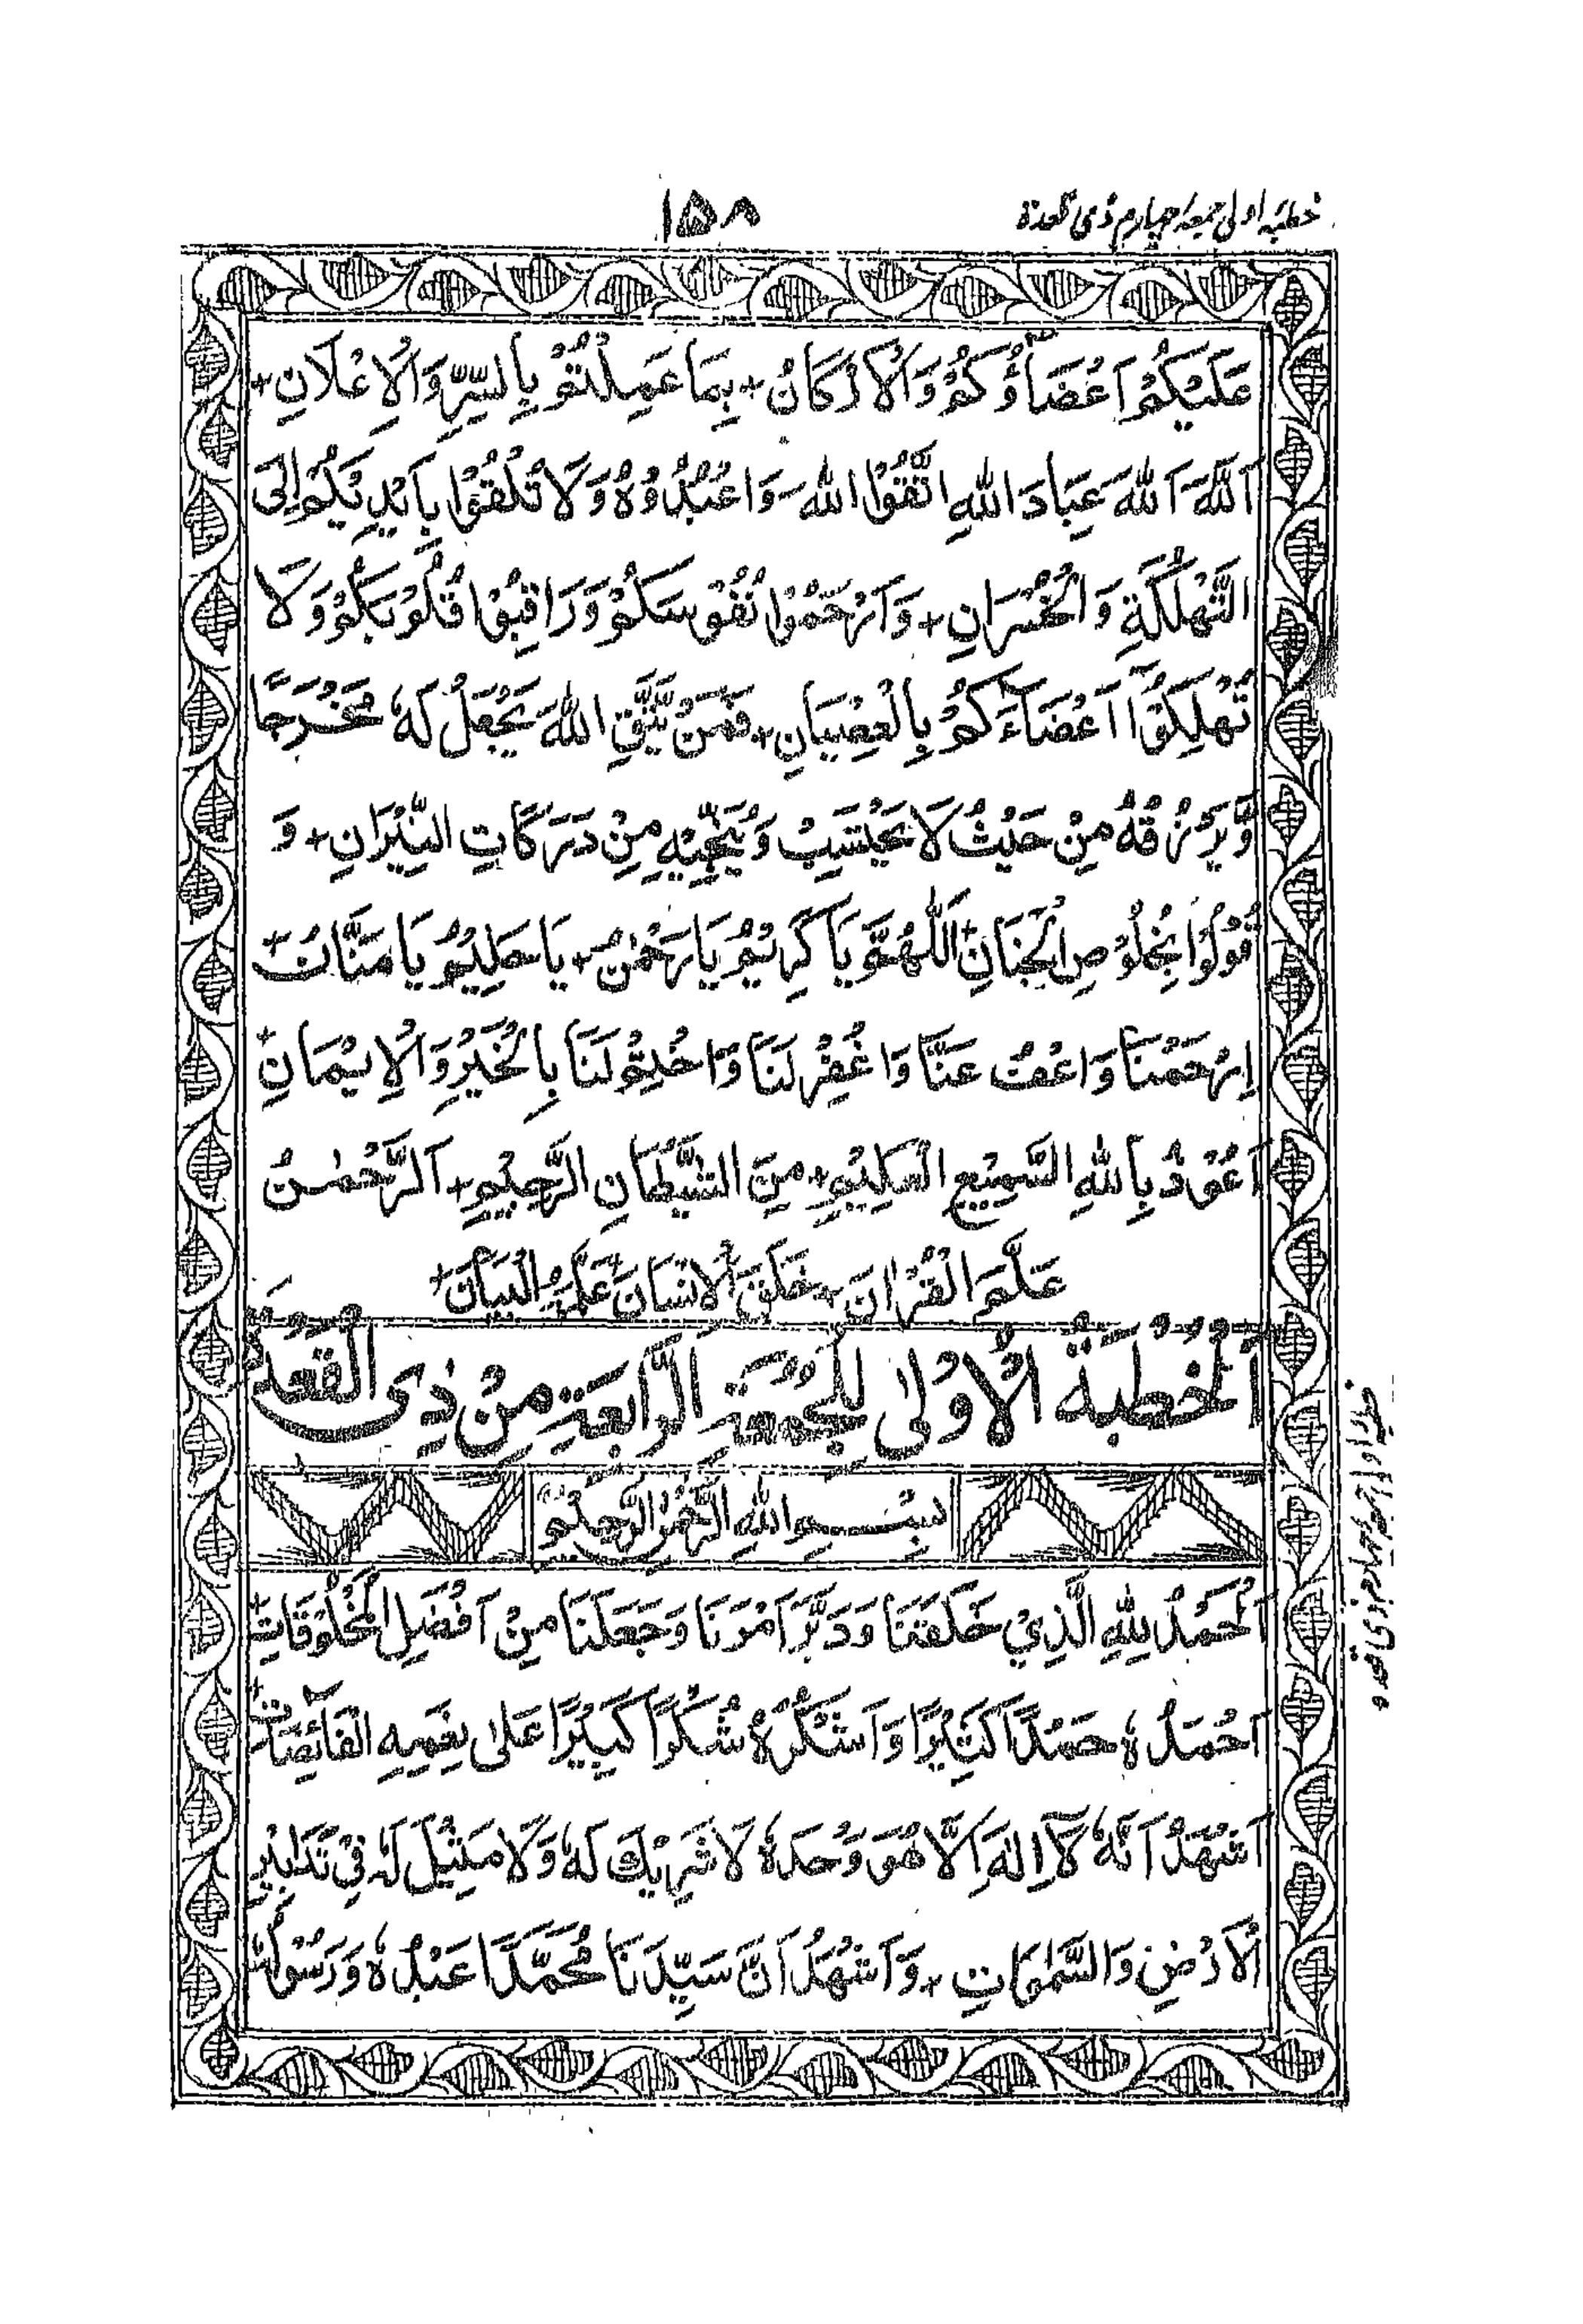 خطبہ اولی جمعہ چہارم ذی قعدۃ
١٥٨
عَلَيْكُمْ اَعْضَاؤُكُمْ وَالْاَرْكَانُ + بِمَا عَمِلْتُمْ بِالسِّرِّ وَالْاِعْلَانِ +
اَللّٰهَ اَللّٰهَ عِبَادَ اللّٰهِ اتَّقُوا اللّٰهَ - وَاعْبُدُوْهُ وَلَا تُلْقُوْا بِاَيْدِيْكُمْ اِلَى
التَّهْلُكَةِ وَالْخُسْرَانِ + وَارْحَمُوْا نُفُوْسَكُمْ وَرَاقِبُوْا قُلُوْبَكُمْ وَلَا
تُهْلِكُوْا اَعْضَاءَكُمْ بِالْعِصْيَانِ + فَمَنْ يَّتَّقِ اللّٰهَ يَجْعَلْ لَهٗ مَخْرَجًا
وَّيَرْزُقْهُ مِنْ حَيْثُ لَا يَحْتَسِبُ وَيُنَجِّيْهِ مِنْ دَرَكَاتِ النِّيْرَانِ + وَ
قُوْلُوْا بِخُلُوْصِ الْجَنَانِ + اَللّٰهُمَّ يَا كَرِيْمُ يَا رَحْمٰنُ + يَا حَلِيْمُ يَا مَنَّانُ +
اِرْحَمْنَا وَاعْفُ عَنَّا وَاغْفِرْ لَنَا وَاخْتِمْ لَنَا بِالْخَيْرِ وَالْاِيْمَانِ +
اَعُوْذُ بِاللّٰهِ السَّمِيْعِ الْعَلِيْمِ + مِنَ الشَّيْطَانِ الرَّجِيْمِ + اَلرَّحْمٰنُ
عَلَّمَ الْقُرْاٰنَ + خَلَقَ الْاِنْسَانَ + عَلَّمَهُ الْبَيَانَ +
اَلْخُطْبَةُ الْاُوْلٰى لِلْجُمُعَةِ الرَّابِعَةِ مِنْ ذِى الْقَعْدَةِ
بِسْمِ اللّٰهِ الرَّحْمٰنِ الرَّحِيْمِ
اَلْحَمْدُ لِلّٰهِ الَّذِيْ خَلَقَنَا وَدَبَّرَ اَمْرَنَا وَجَعَلَنَا مِنْ اَفْضَلِ الْمَخْلُوْقَاتِ +
اَحْمَدُهٗ حَمْدًا كَثِيْرًا وَاَشْكُرُهٗ شُكْرًا كَبِيْرًا عَلٰى نِعَمِهِ الْفَائِضَاتِ +
اَشْهَدُ اَنَّهٗ لَا اِلٰهَ اِلَّا هُوَ وَحْدَهٗ لَا شَرِيْكَ لَهٗ وَلَا مَثِيْلَ لَهٗ فِيْ تَدَابِيْرِ
الْاَرْضِ وَالسَّمٰوٰاتِ + وَاَشْهَدُ اَنَّ سَيِّدَنَا مُحَمَّدًا عَبْدُهٗ وَرَسُوْلُهٗ